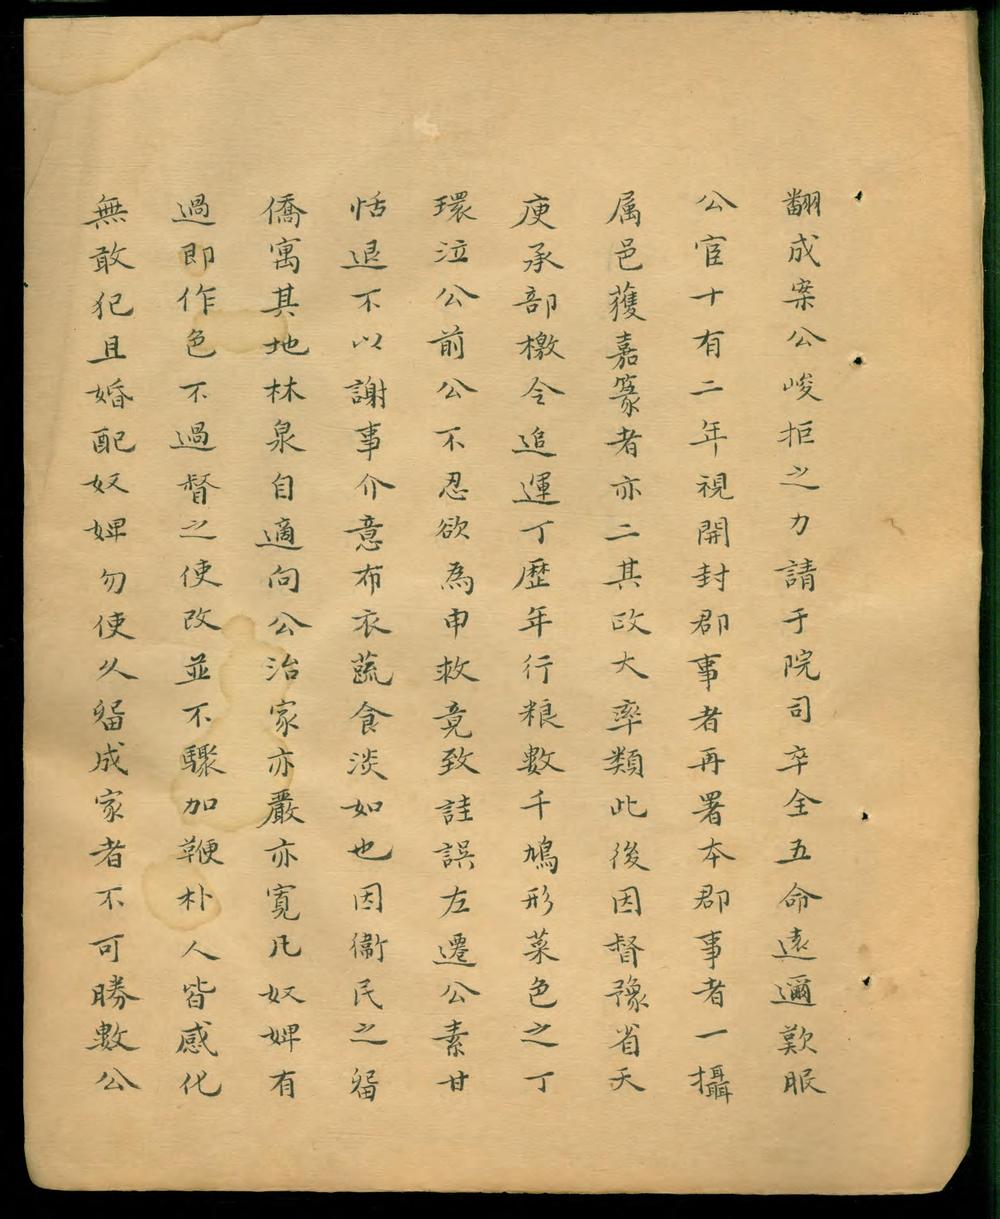 翻成案公峻拒之力請于院司卒全五命遠邇歎服
公官十有二年視開封郡事者再署本郡事者一攝
属邑獲嘉篆者亦二其政大率類此後因督豫省天
庾承部檄令追運丁歷年行粮數千鳩形菜色之丁
環泣公前公不忍欲為申救竟致詿誤左遷公素甘
恬退不以謝事介意布衣蔬食淡如也因衞民之留
僑寓其地林泉自適向公治家亦嚴亦寬凡奴婢有
過即作色不過督之使改並不驟加鞭朴人皆感化
無敢犯且婚配奴婢勿使久留成家者不可勝數公